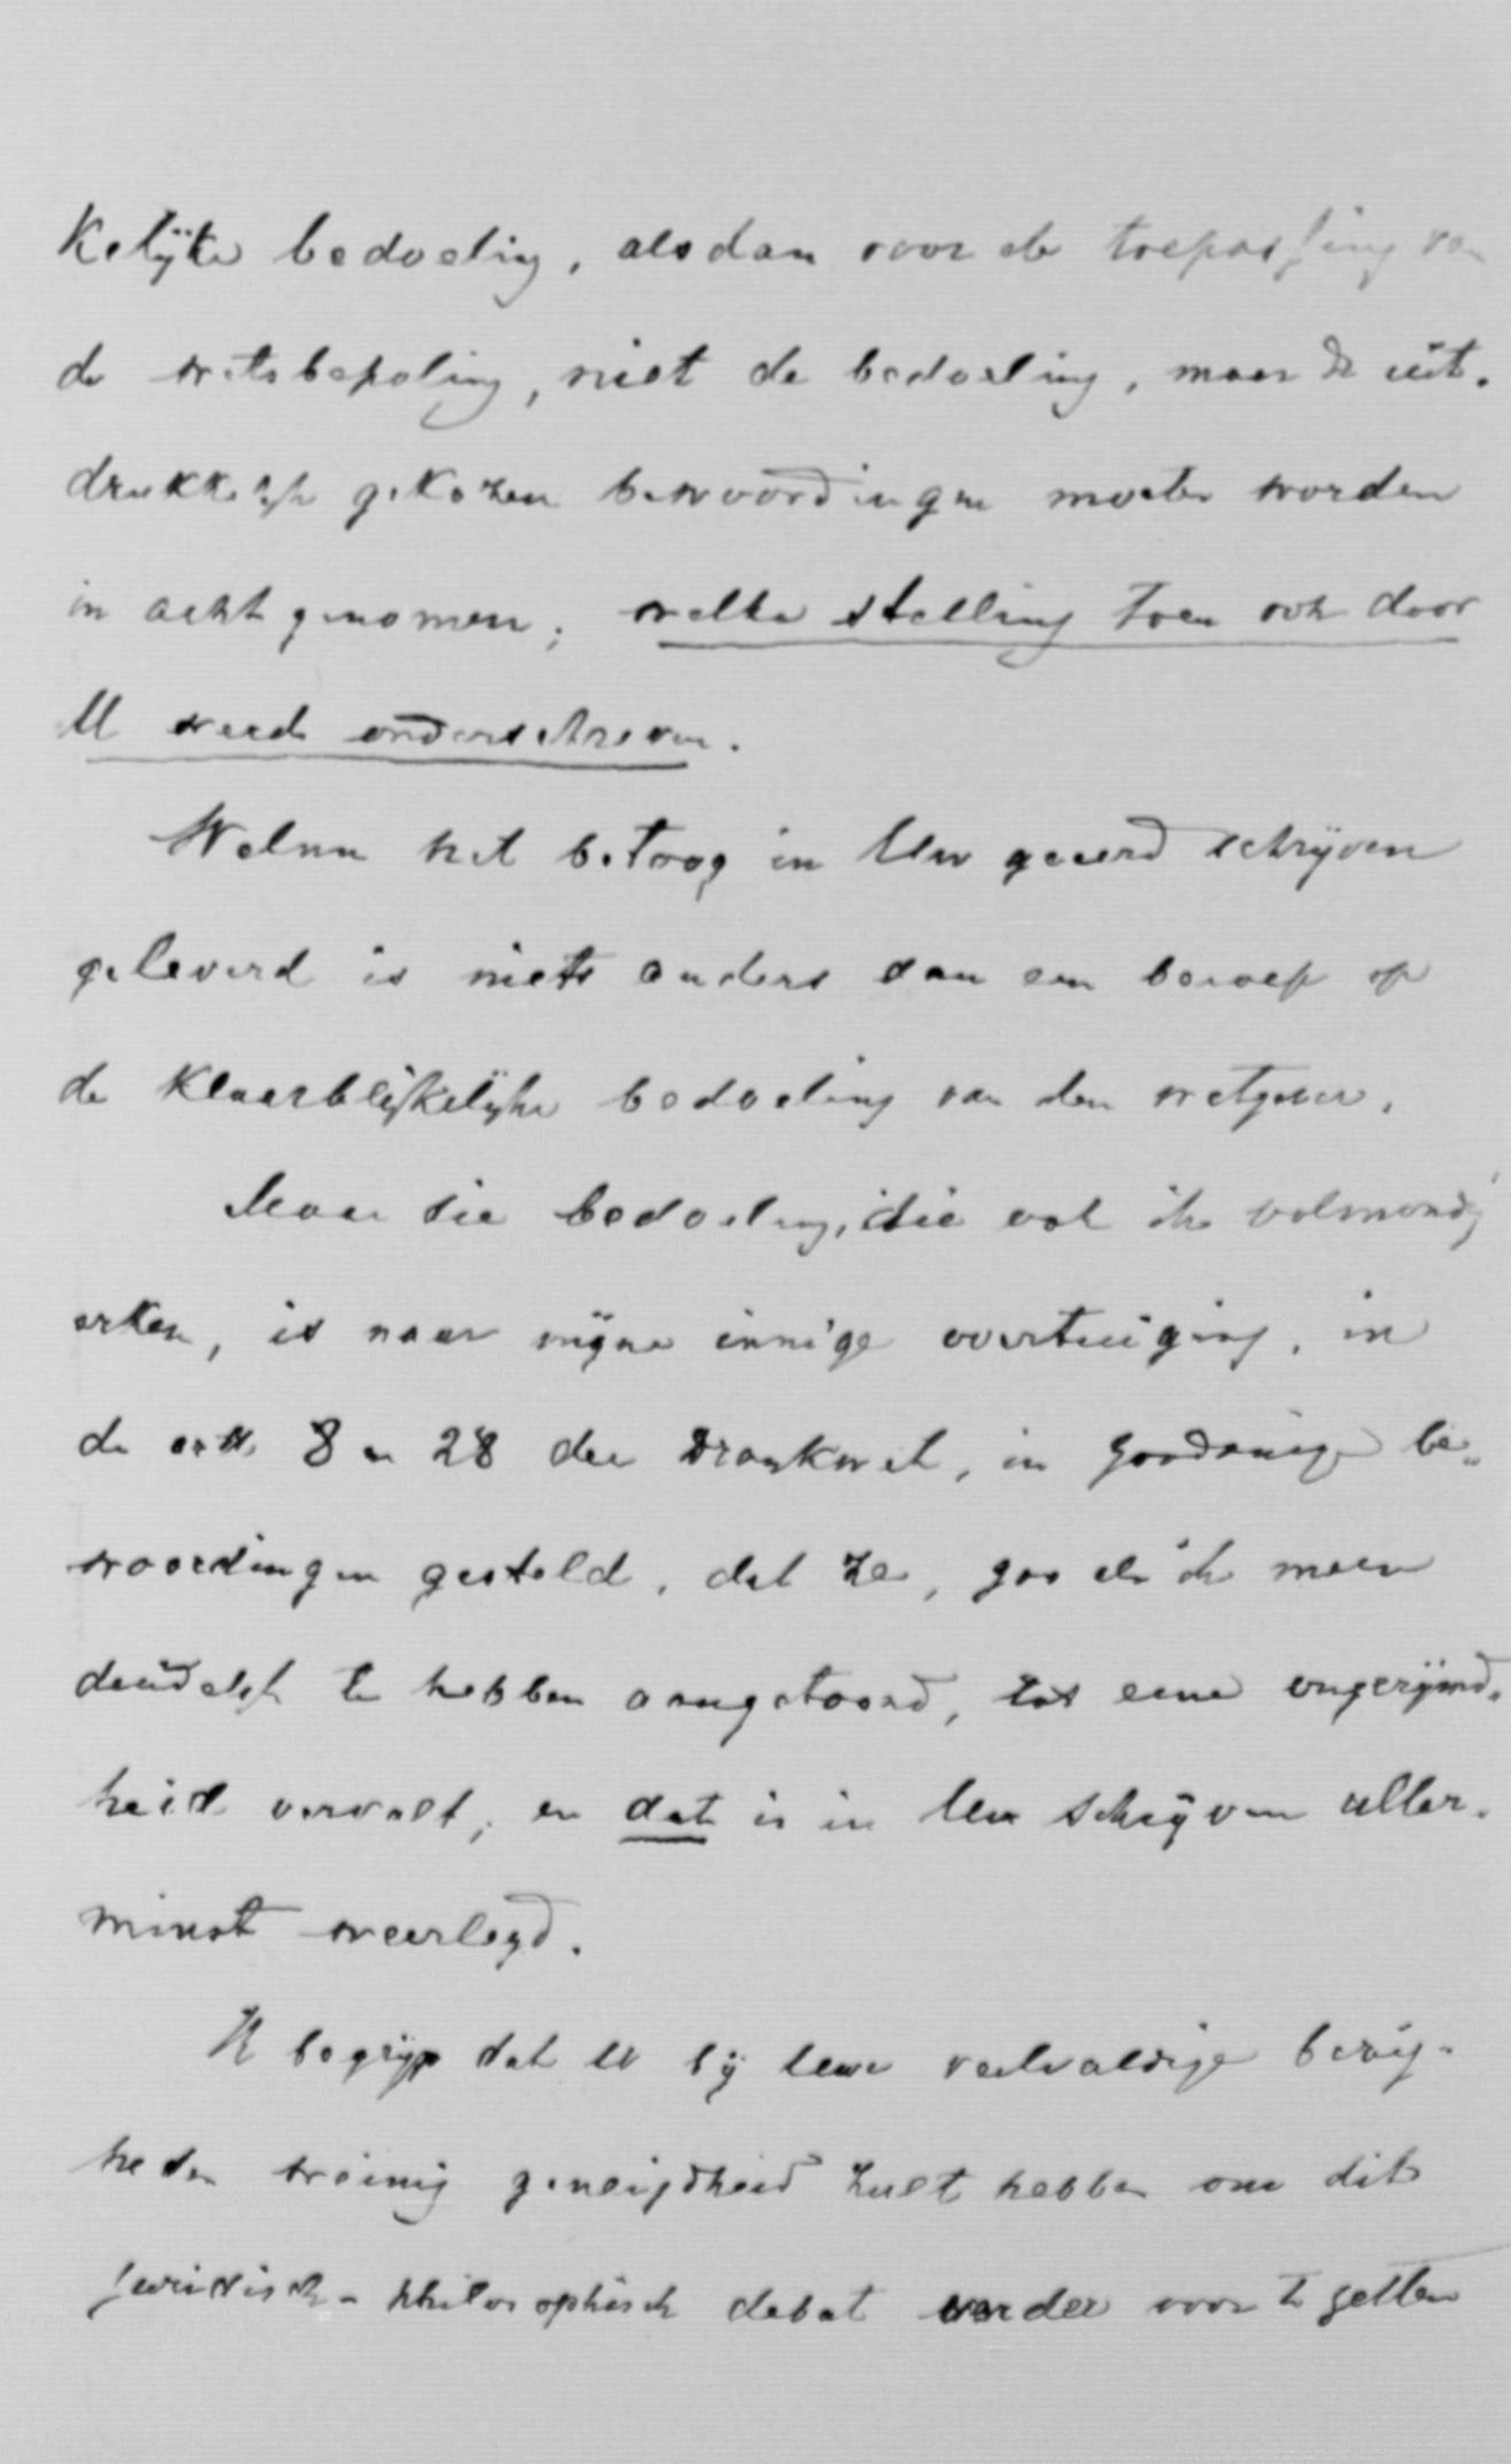 kelijke bedoeling, alsdan voor de toepassing van
de wetsbepaling, niet de bedoeling, maar de uit-
drukkelijk gekozen bewoordingen moeten worden
in acht genomen; welke stelling toen ook door
U werd onderschreven.
Welnu het betoog in Uw geeerd schrijven
geleverd is niets anders dan een beroep op
de klaarblijkelijke bedoeling van den wetgever.
Maar die bedoeling, die ook ik volmondig
erken, is naar mijne innige overtuiging, in
de artt. 8 en 28 der Drankwet, in zoodanige be-
woordingen gesteld, dat ze, zoo als ik meen
duidelijk te hebben aangetoond, tot eene ongerijmd-
heid vervalt; en dat is in Uw schrijven aller-
minst weerlegd.
Ik begrijp dat U bij Uwe veelvuldige bezig-
heden weinig geneigdheid zult hebben om dit
juridisch-philosophisch debat verder voor te zetten